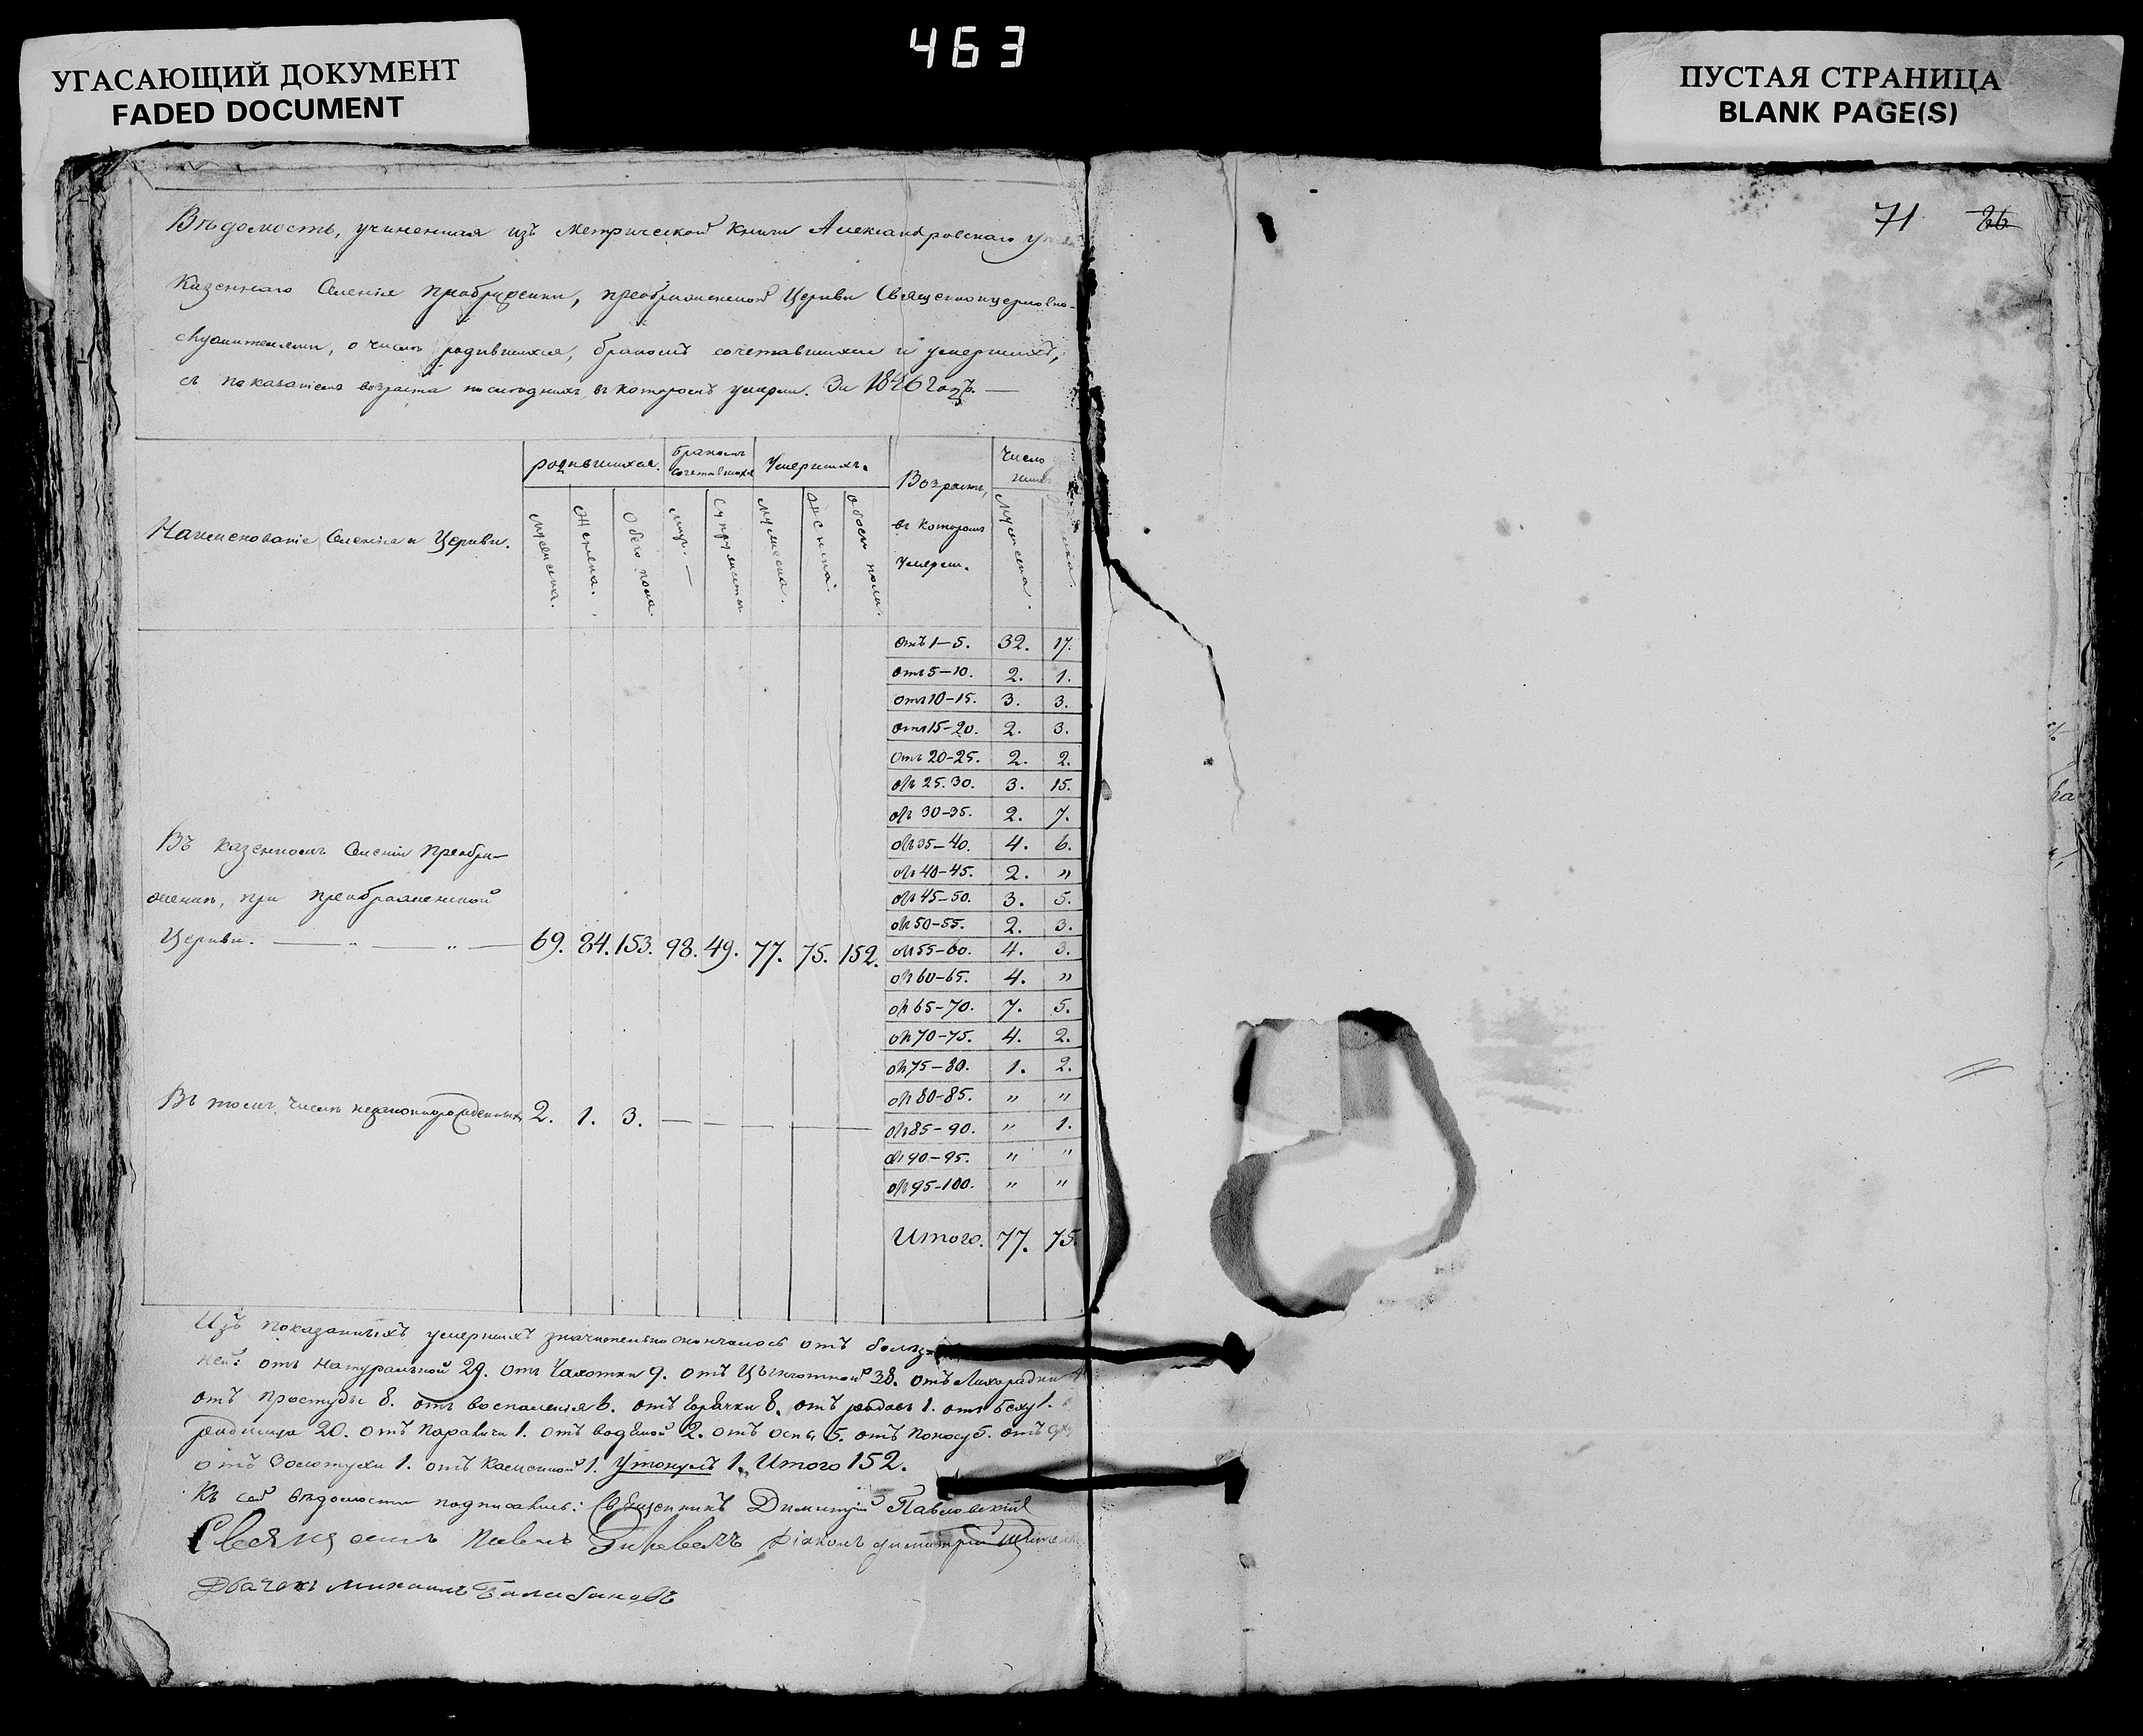 463
УГАСАЮЩИЙ ДОКУМЕНТ
FADED DOCUMENT
ПУСТАЯ СТРАНИЦА
BLANK PAGE(S)
71 26
Вѣдомость, учиненная изъ Метрической книги Александровскаго
Казеннаго Селенія Преображенки, преображенской Церкви Священноцерковно-
служителями, о числѣ родившихся, бракомъ сочетавшихся и умершихъ,
съ показаніемъ возраста послѣднихъ въ которомъ умерли. За 1846 годъ. —
Наименованіе Селенія и Церкви.
родившихся.
бракомъ сочетавшихся
Умершихъ.
Возрастъ, въ которомъ умерли.
Число
мужеска. женска. обоего пола. лицъ. — супружествъ мужеска. женска. обоего пола. мужеска.
отъ 1—5. 32. 17.
отъ 5—10. 2. 1.
отъ 10—15. 3. 3.
отъ 15—20. 2. 3.
отъ 20—25. 2. 2.
отъ 25.30. 3. 15.
отъ 30—35. 2. 7.
отъ 35—40. 4. 6.
отъ 40—45. 2. "
отъ 45—50. 3. 5.
отъ 50—55. 2. 3.
отъ 55—60. 4. 3.
отъ 60—65. 4. "
отъ 65—70. 7. 5.
отъ 70—75. 4. 2.
отъ 75—80. 1. 2.
отъ 80—85. " "
отъ 85—90. " 1.
отъ 90—95. " "
отъ 95—100. " "
Итого. 77. 75.
Въ казенномъ Селеніи Преобра-
женки, при преображенской
Церкви. — " — " — 69. 84. 153. 98. 49. 77. 75. 152.
Въ томъ числѣ незаконнорожденныхъ 2. 1. 3. — — — — —
Изъ показанныхъ умершихъ значительно скончалось отъ болѣз-
ней: отъ натуральной 29. отъ Чахотки 9. отъ Цынготной 38. отъ Лихорадки
отъ простуды 8. отъ воспаленія 6. отъ горячки 8. отъ родовъ 1. отъ 1.
родимца 20. отъ паралича 1. отъ водяной 2. отъ оспы 5. отъ поносу 5. отъ
отъ Золотухи 1. отъ 1. Утонулъ 1. Итого 152.
Къ сей вѣдомости подписались: Священникъ Димитрій Павловскій
Священникъ Павелъ Діаконъ Димитрій
Дьячокъ Михаилъ